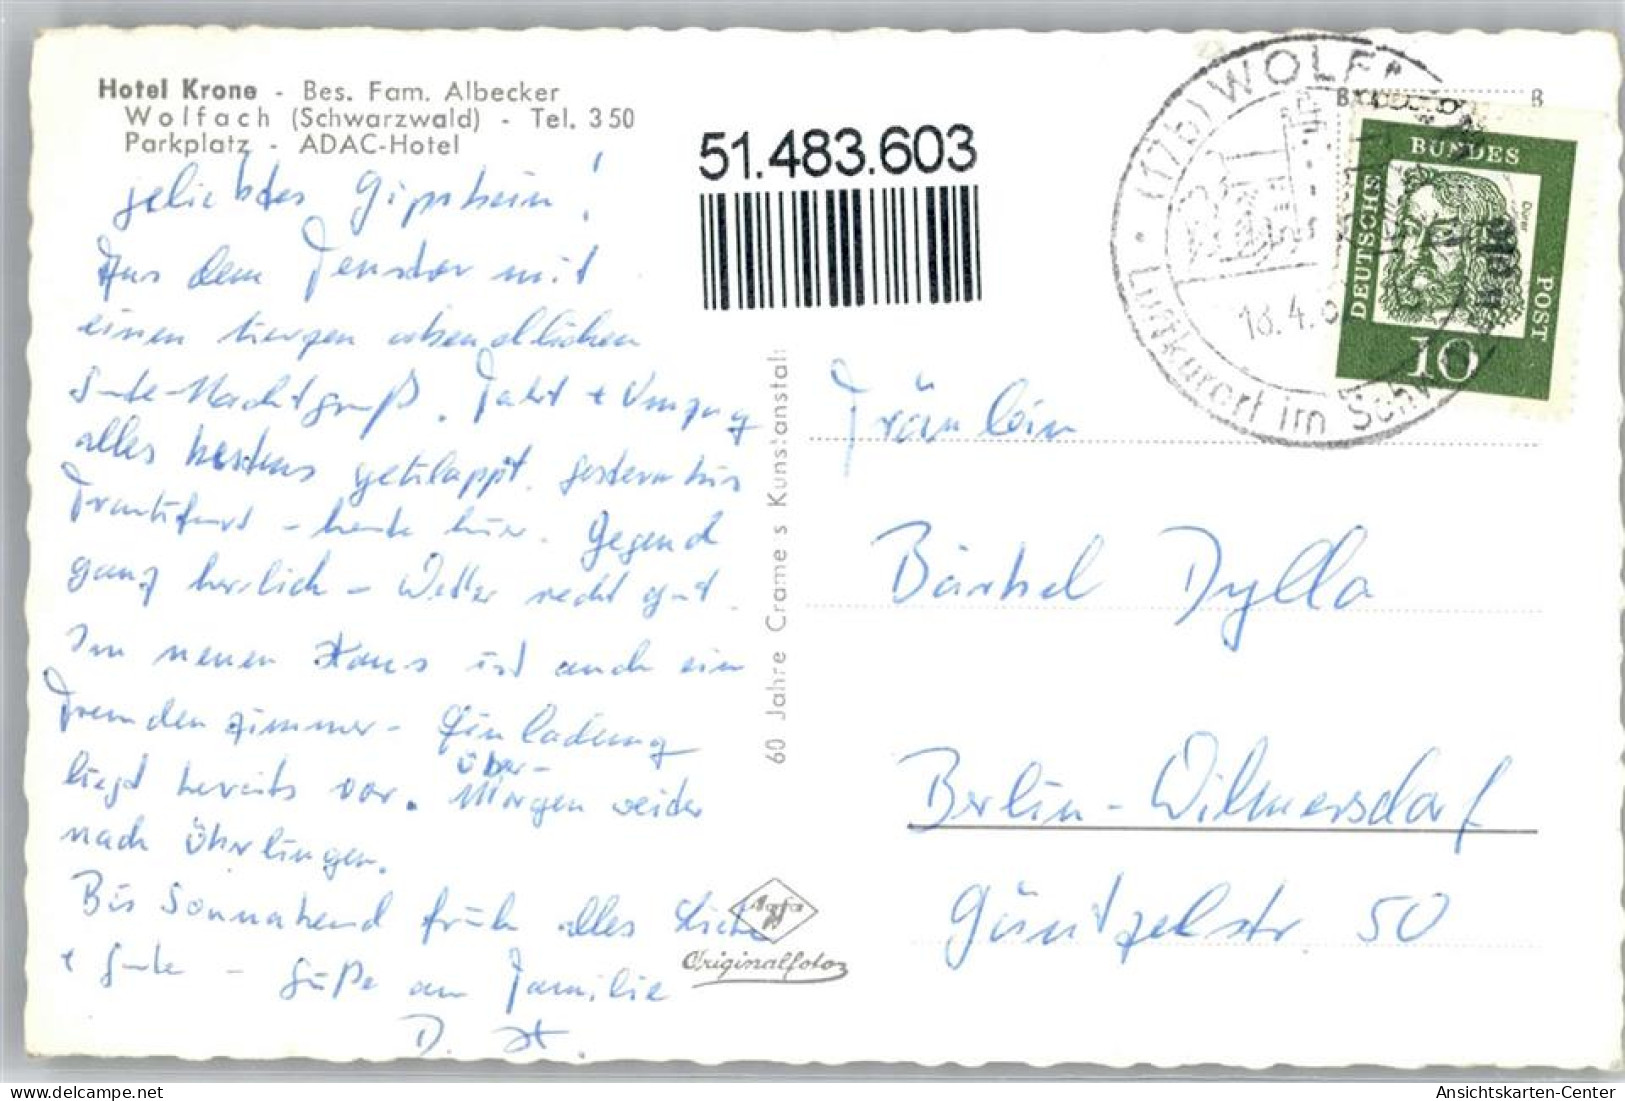 Hotel Krone - Bes. Fam. Albecker
Wolfach (Schwarzwald) - Tel. 350
Parkplatz - ADAC-Hotel
geliebtes Gipsbein!
Aus dem Fenster mit
einen abendlichen
Gute-Nachtgruß. Fahrt + Umzug
alles bestens geklappt. Gestern bis
Frankfurt - heute hier. Gegend
ganz herrlich - Wetter recht gut.
Im neuen Haus ist auch ein
Fremdenzimmer - Einladung
liegt bereits vor. Über-
Morgen weiter
nach Überlingen.
Bis Sonnabend früh alles Liebe
+ Gute - Grüße an Familie
D. H.
51.483.603
60 Jahre Cramers Kunstanstalt
Agfa
Originalfoto
(17b) WOLF
Luftkurort im Schw
DEUTSCHE
BUNDES
POST
Dürer
10
Fräulein
Bärbel Dylla
Berlin-Wilmersdorf
Güntzelstr. 50
Ansichtskarten-Center